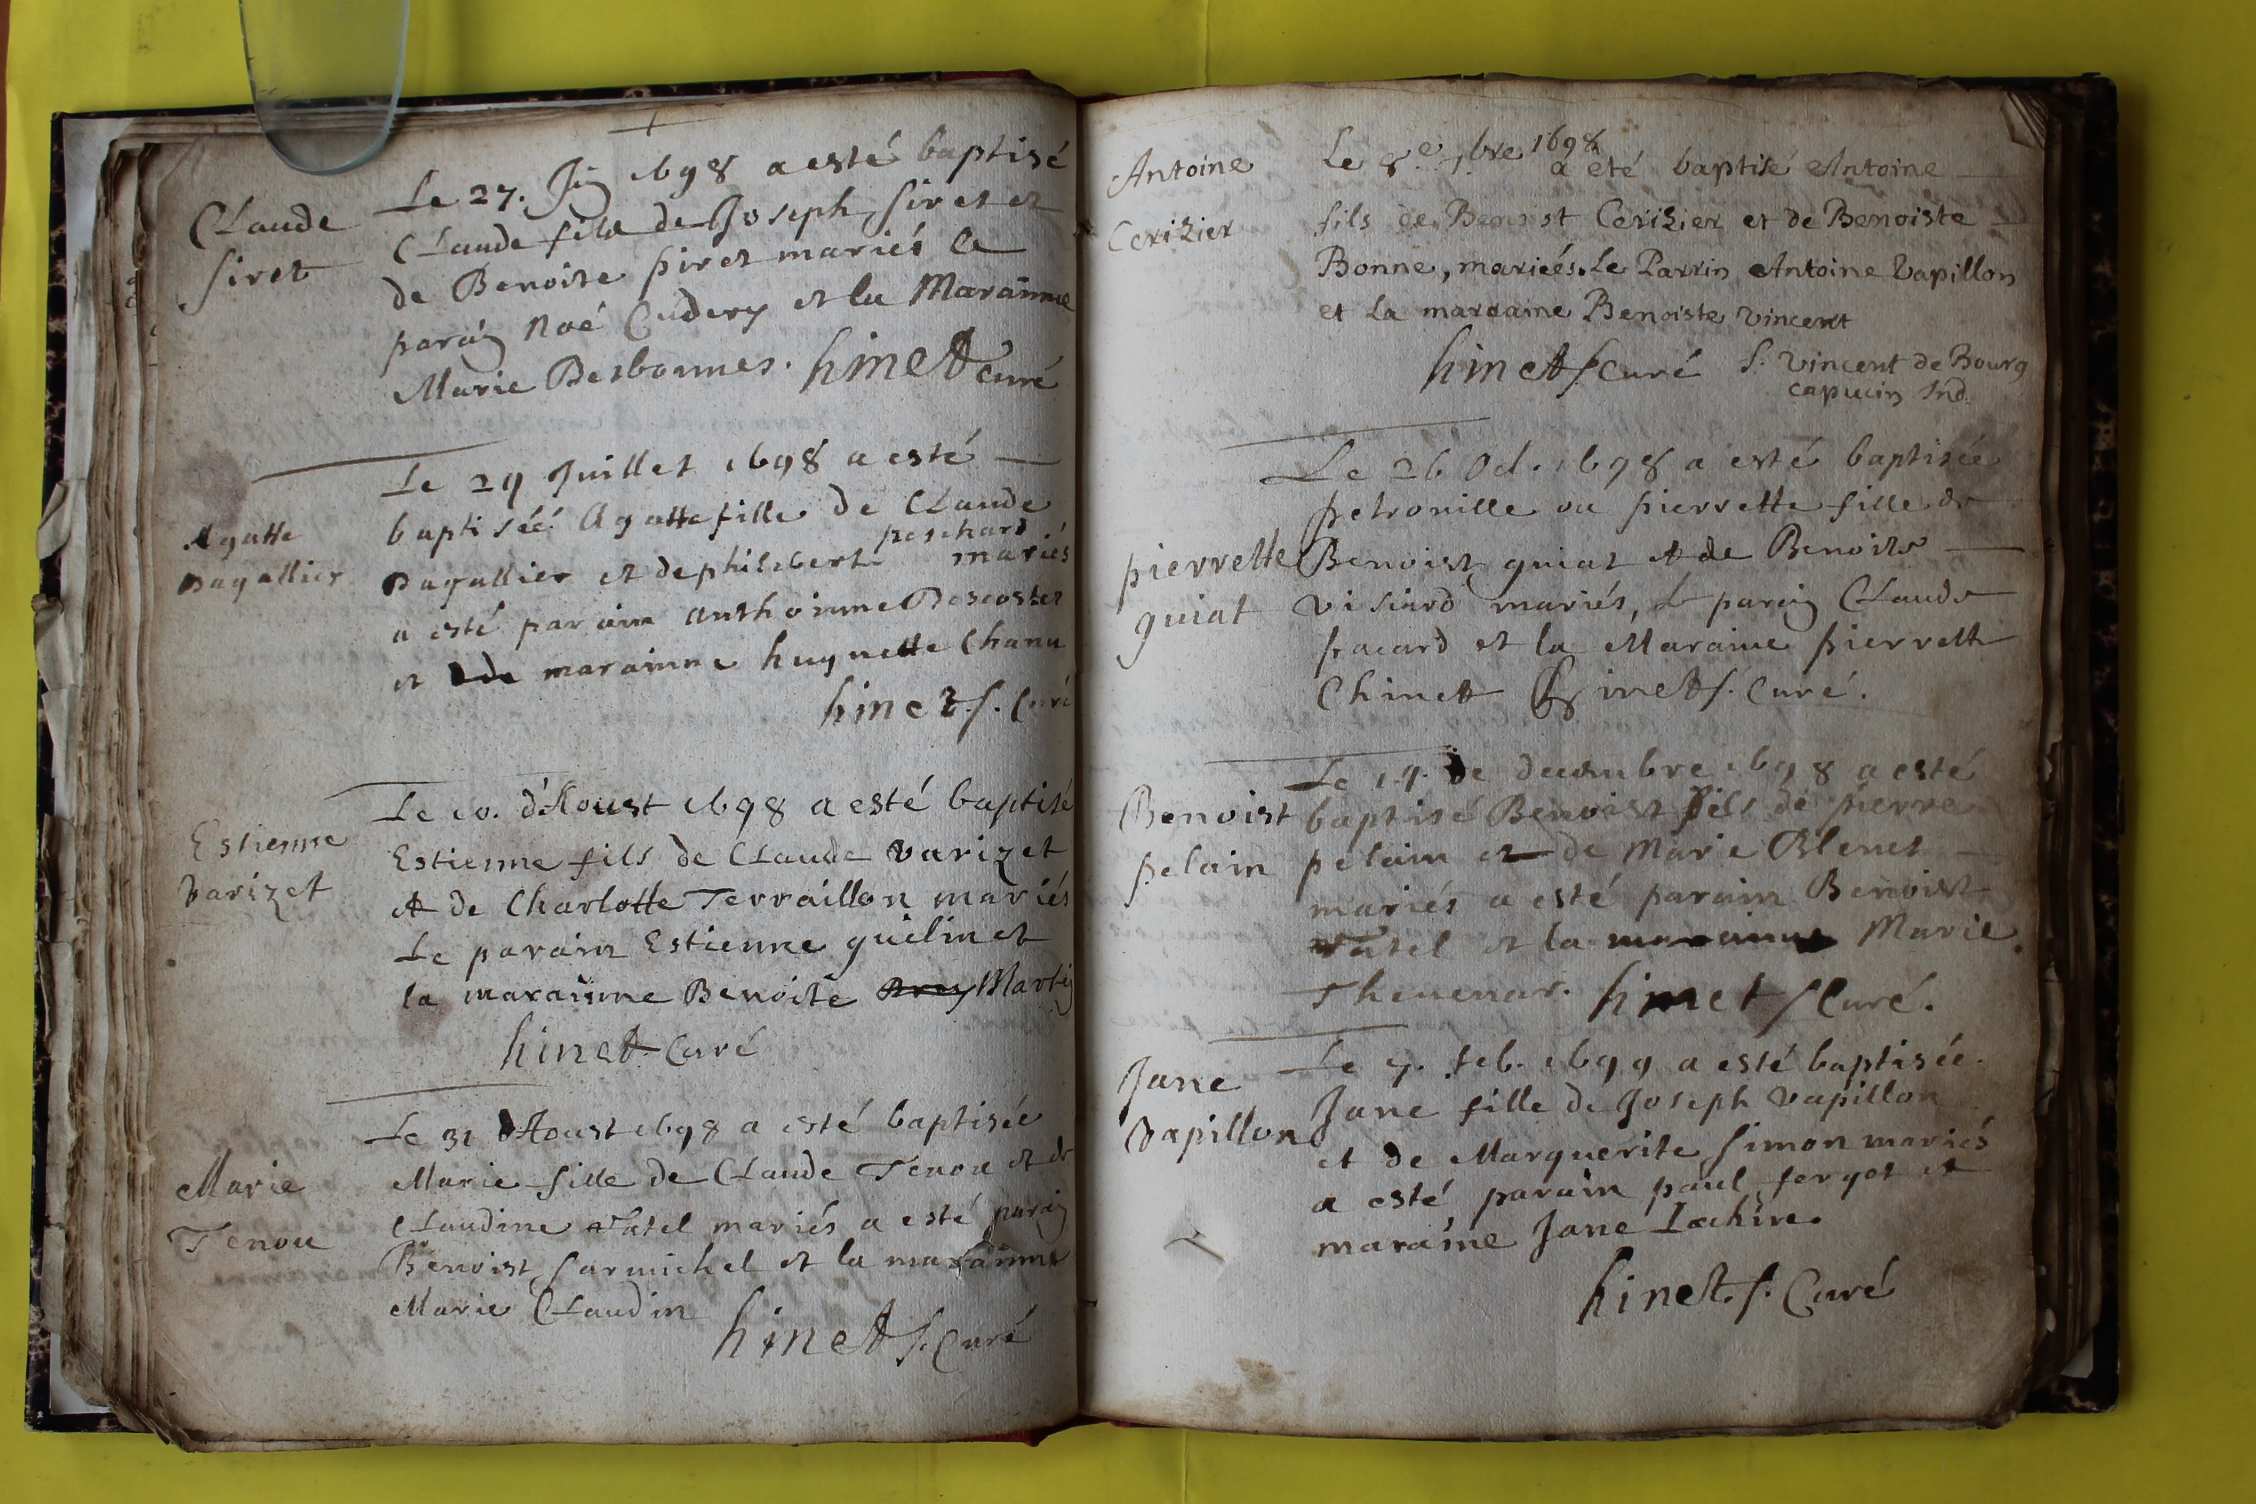 Claude
Siret
Le 27. Juin 1698 a esté baptisé
Claude fils de Joseph Siret et
de Benoite piret mariés le
parain Noé Cudery et la Marainne
Marie Desbonnes. hinet Curé
Agatte
Dagallier
Le 29 Juillet 1698 a esté
baptiséé Agatte fille de Claude
Dagallier et de philiberte peschard mariés
a esté parain anthoinne Descostes
et de marainne huguette Chanu
hinet. s. Curé
Estienne
Varizet
Le 10. d'Aoust 1698 a esté baptisé
Estienne fils de Claude Varizet
et de Charlotte Terraillon mariés
Le parain Estienne guelin et
la marainne Benoite Martin
hinet Curé
Marie
Tenou
Le 31 d'Aoust 1698 a esté baptisée
Marie fille de Claude Tenou et de
Claudine Vatel mariés a esté parain
Benoist Sarmichel et la marainne
Marie Claudin
hinet s. Curé
Antoine
Cerizier
Le 8e 7bre 1698 a eté baptisé Antoine
fils de Benoist Cerizier et de Benoiste
Bonne, mariés. Le Parrin Antoine Vapillon
et la marraine Benoiste Vincent
hinet s Curé
f. Vincent de Bourg
capucin Ind.
pierrette
guiat
Le 26 Oct. 1698 a esté baptisée
petronille ou pierrette fille de
Benoist guiat et de Benoite
Visiard mariés, Le parain Claude
pacard et la Maraine pierrette
Chinet hinet s. Curé.
Benoist
pelain
Le 14. de decembre 1698 a esté
baptisé Benoist fils de pierre
pelain et de Marie Blenet
mariés a esté parain Benoist
Vatel et la marainne Marie
Thevenar. hinet s Curé.
Jane
Vapillon
Le 7. feb. 1699 a esté baptisée
Jane fille de Joseph Vapillon
et de Marguerite Simon mariés
a esté parain paul fergot et
maraine Jane Iachire.
hinet. s. Curé